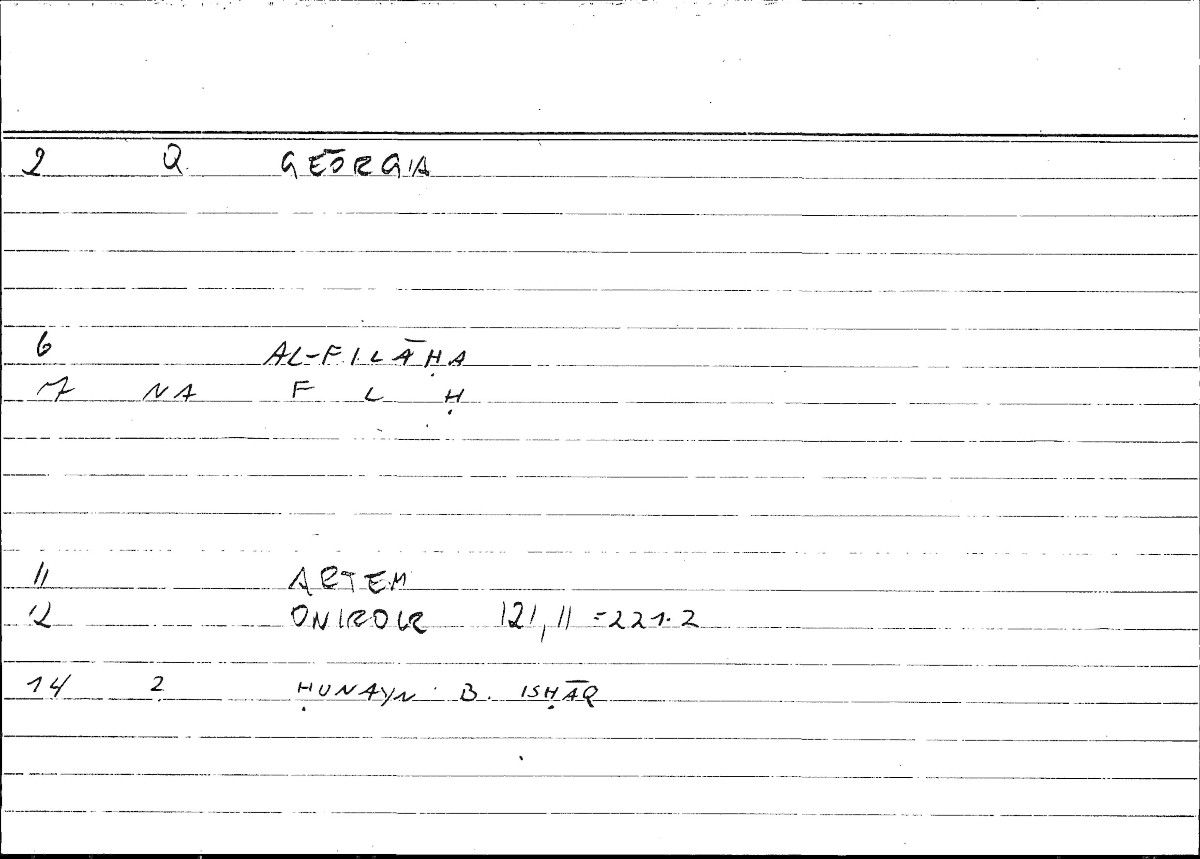 2 Q GEŌRGIA
6 AL-FILĀḤA
7 NA F L Ḥ
11 ARTEM
12 ONIROCR 121,11 = 221.2
14 2 ḤUNAYN B. ISḤĀQ